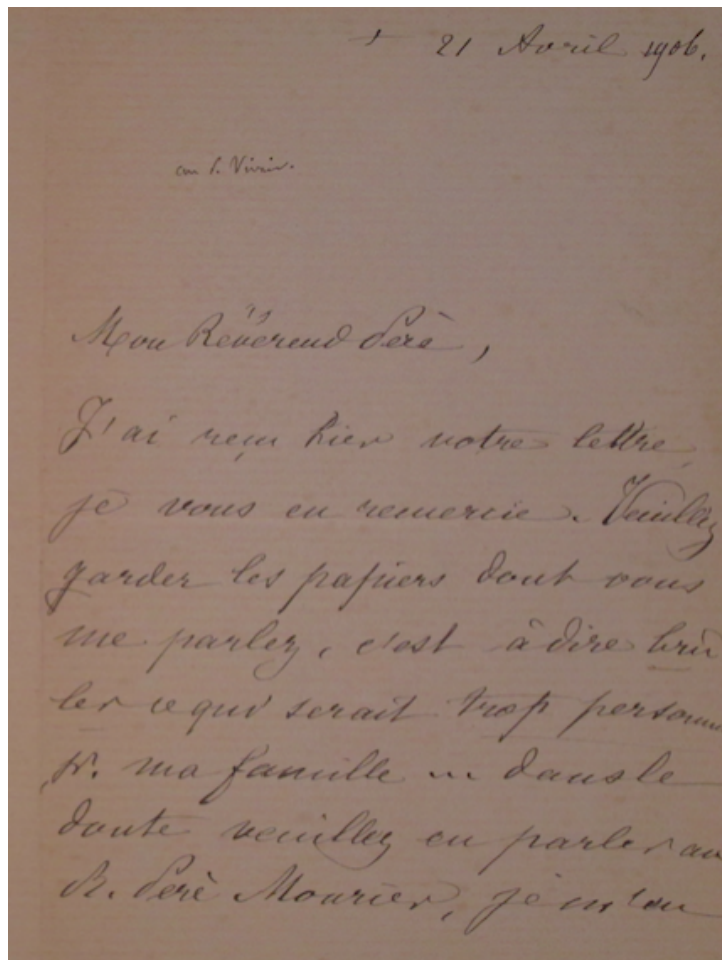 21 Avril 1906.
au P. Vivier.
Mon Révérend Père,
J'ai reçu hier votre lettre,
je vous en remercie. Veuillez
garder les papiers dont vous
me parlez, c'est à dire brû
ler ce qui serait trop personn
pr. ma famille ... dans le
doute veuillez en parler au
R. Père Mourier, je m'en